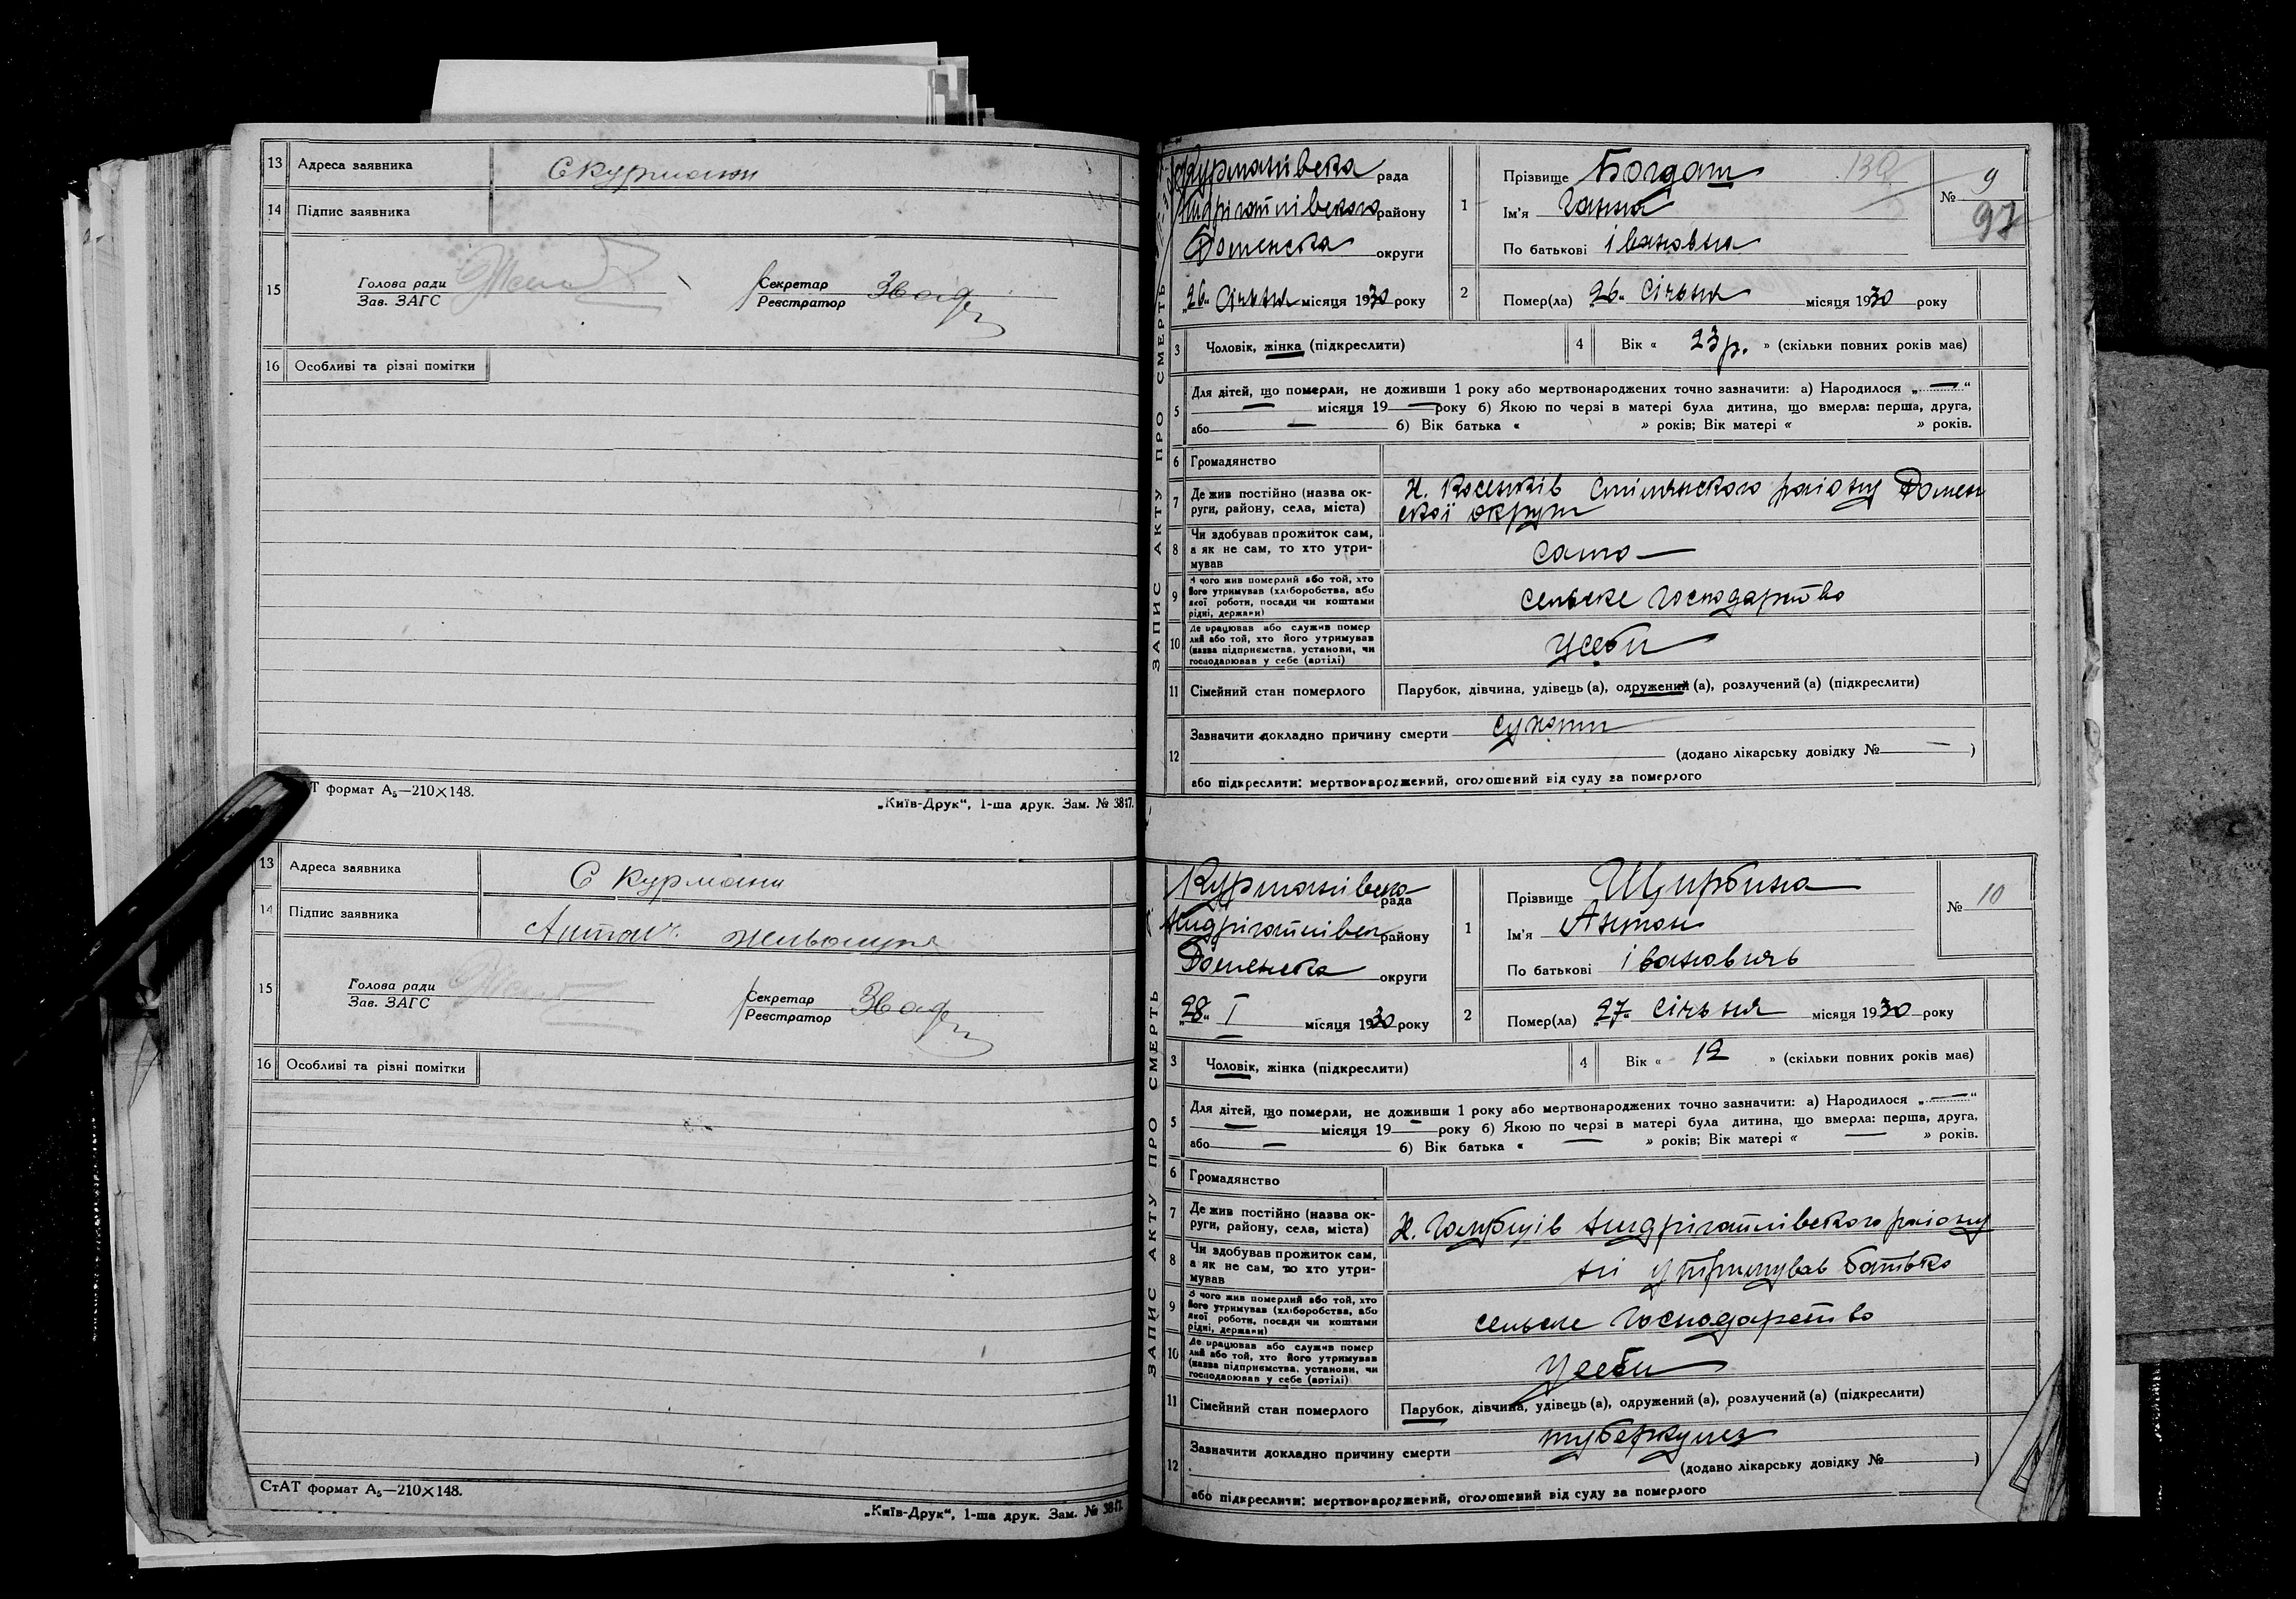 13 Адреса заявника С Курмани
14 Підпис заявника
15 Голова ради
Зав. ЗАГС
Секретар
Реєстратор
16 Особливі та різні помітки
Т формат А5—210×148.
„Київ-Друк“, 1-ша друк. Зам. № 3817.
13 Адреса заявника С Курмани
14 Підпис заявника Антон
15 Голова ради
Зав. ЗАГС
Секретар
Реєстратор
16 Особливі та різні помітки
СтАТ формат А5—210×148.
„Київ-Друк“, 1-ша друк. Зам. № 3817.
ЗАПИС АКТУ ПРО СМЕРТЬ
Курманівська рада
району
Роменська округи
„26“ Січня місяця 1930 року
1 Прізвище Богдат
Ім'я Ганна
По батькові івановна
130
№ 9
97
2 Помер(ла) „26“ Січня місяця 1930 року
3 Чоловік, жінка (підкреслити)
4 Вік « 23 р. » (скільки повних років має)
5 Для дітей, що померли, не доживши 1 року або мертвонароджених точно зазначити: а) Народилося „—“
— місяця 19— року б) Якою по черзі в матері була дитина, що вмерла: перша, друга,
або — б) Вік батька « » років; Вік матері « » років.
6 Громадянство
7 Де жив постійно (назва ок-
руги, району, села, міста)
Х. району Ромен
ської округи
8 Чи здобував прожиток сам,
а як не сам, то хто утри-
мував
сама —
9 З чого жив померлий або той, хто
його утримував (хліборобства, або
якої роботи, посади чи коштами
рідні, держави)
сельске господарство
10 Де працював або служив помер
лий або той, хто його утримував
(назва підприємства, установи, чи
господарював у себе (артілі)
усеби
11 Сімейний стан померлого
Парубок, дівчина, удівець (а), одружений (а), розлучений (а) (підкреслити)
12 Зазначити докладно причину смерти сухоти
(додано лікарську довідку № — )
або підкреслити: мертвонароджений, оголошений від суду за померлого
ЗАПИС АКТУ ПРО СМЕРТЬ
Курманівська рада
району
Роменська округи
„28“ I місяця 1930 року
1 Прізвище Щирбина
Ім'я Антон
По батькові івановичь
№ 10
2 Помер(ла) „27“ Січня місяця 1930 року
3 Чоловік, жінка (підкреслити)
4 Вік « 12 » (скільки повних років має)
5 Для дітей, що померли, не доживши 1 року або мертвонароджених точно зазначити: а) Народилося „—“
— місяця 19— року б) Якою по черзі в матері була дитина, що вмерла: перша, друга,
або — б) Вік батька « — » років; Вік матері « — » років.
6 Громадянство
7 Де жив постійно (назва ок-
руги, району, села, міста)
Х. району
8 Чи здобував прожиток сам,
а як не сам, то хто утри-
мував
ні утримував батько
9 З чого жив померлий або той, хто
його утримував (хліборобства, або
якої роботи, посади чи коштами
рідні, держави)
сельске господарство
10 Де працював або служив помер
лий або той, хто його утримував
(назва підприємства, установи, чи
господарював у себе (артілі)
усеби
11 Сімейний стан померлого
Парубок, дівчина, удівець (а), одружений (а), розлучений (а) (підкреслити)
12 Зазначити докладно причину смерти туберкульз
(додано лікарську довідку № )
або підкреслити: мертвонароджений, оголошений від суду за померлого